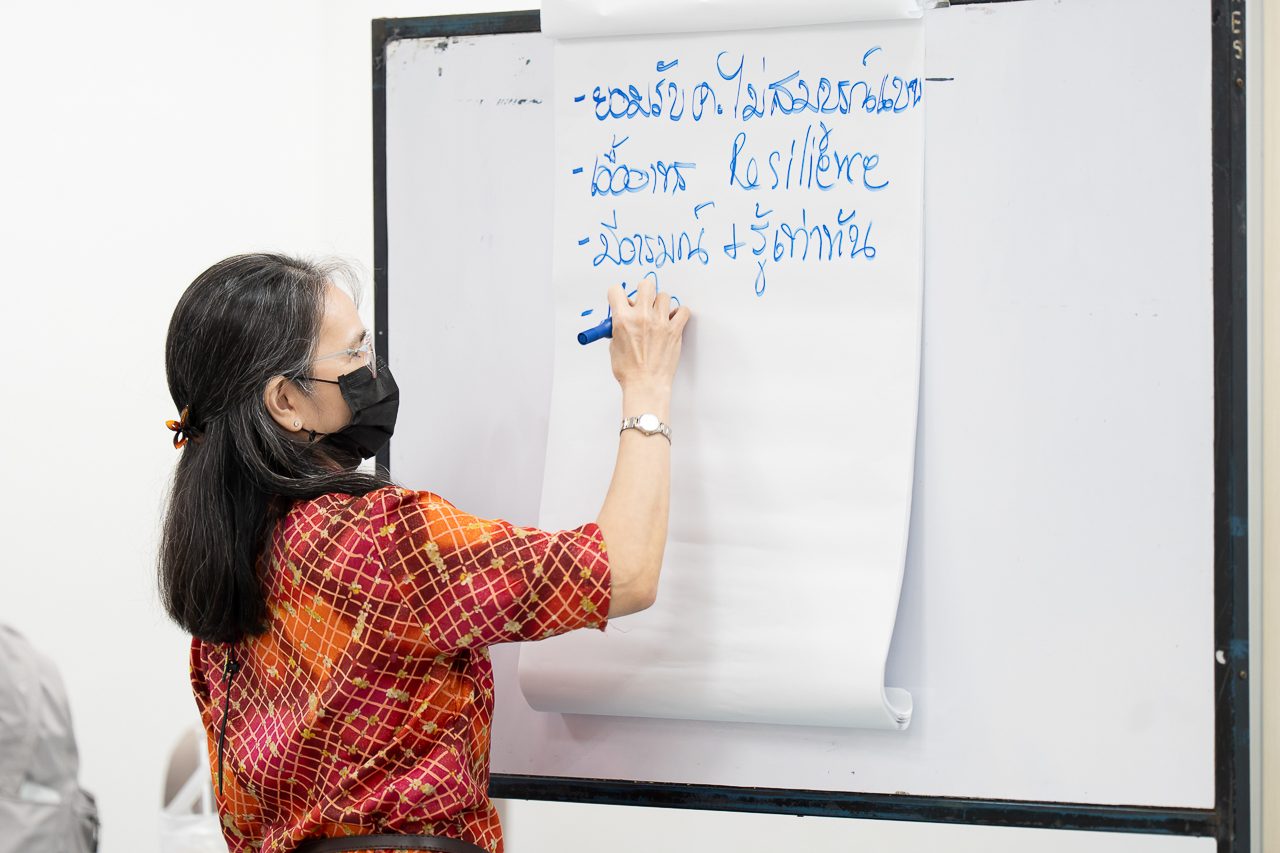 - ยอมรับ ค. ไม่สมบูรณ์แบบ
- เอื้ออาทร Resilience
- มีอารมณ์ + รู้เท่าทัน
-